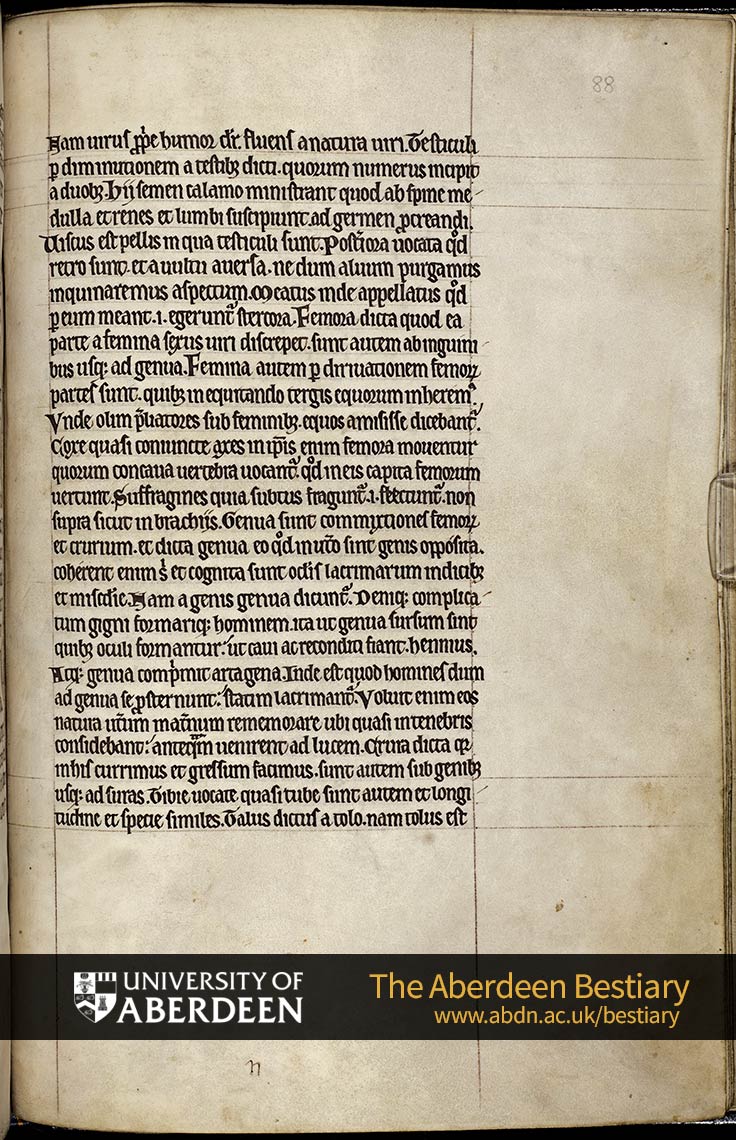 88
Nam uirus ꝓp̄e humor dr̄. fluens a natura uiri. Testiculi
ꝑ diminutionem a testibꝫ dicti. quorum numerus incipit
a duobꝫ. Hij semen calamo ministrant quod ab spine me
dulla et renes et lumbi suscipiunt. ad germen ꝓcreandi.
Uiscus est pellis in qua testiculi sunt. Post̄iora uocata qd̄
retro sunt. et a uultu auersa. ne dum aluum purgamus
inquinaremus aspectum. Meatus inde appellatus qd̄
ꝑ eum meant .i. egerunt̄ stercora. Femora dicta quod ea
parte a femina sexus uiri discrepet. sunt autem ab ingui
bus usqꝫ ad genua. Femina autem ꝑ diriuationem femoꝝ
partes sunt. quibꝫ in equitando tergis equorum inherem᷒.
Vnde olim p̄liatores sub feminibꝫ equos amisisse dicebant̄.
Coxe quasi coniuncte axes in ip̄is enim femora mouentur
quorum concaua uertebra uocant̄. qd̄ in eis capita femorum
uertunt̄. Suffragines quia subtus fragunt̄ .i. flectunt̄. non
supra sicut in brachijs. Genua sunt commixtiones femoꝝ
et crurium. et dicta genua eo qd̄ in ut̄o sint genis opposita.
coherent enim s᷒ et cognita sunt oclis lacrimarum indicibꝫ
et mis᷒cdie. Nam a genis genua dicunt̄. Deniqꝫ complica
tum gigni formariqꝫ hominem. ita ut genua sursum sint
quibꝫ oculi formantur. ut caui ac reconditi fiant. hennius.
Atqꝫ genua comp̄mit arta gena. Inde est quod homines dum
ad genua se ꝓsternunt. statim lacrimant̄. Voluit enim eos
natura ut̄um mat̄num rememorare ubi quasi in tenebris
considebant. anteq̄m uenirent ad lucem. Crura dicta qꝛ
in his currimus et gressum facimus. sunt autem sub genibꝫ
usqꝫ ad suras. Tibie uocate quasi tube sunt autem et longi
tudine et specie similes. Talus dictus a tolo. nam tolus est
UNIVERSITY OF
ABERDEEN
The Aberdeen Bestiary
www.abdn.ac.uk/bestiary
n